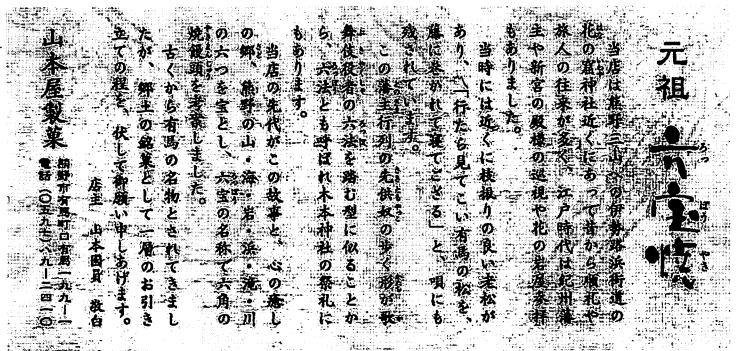 元祖
六宝焼
ろっぽうやき
当店は熊野三山への伊勢路浜街道の
花の窟神社近くにあって昔から順礼や
旅人の往来が多く、江戸時代は紀州藩
主や新宮の殿様の巡視や花の岩屋参拝
もありました。
当時には近くに枝振りの良い老松が
あり、「行たら見てこい有馬の松を、
藤に巻かれて寝てござる」と、唄にも
残されています。
この藩主行列の先供奴の歩く形が歌
舞伎役者の六法を踏む型に似ることか
ら、六法とも呼ばれ木本神社の祭礼に
もあります。
当店の先代がこの故事と、心の癒し
の郷、熊野の山・海・岩・浜・滝・川
の六つを宝とし、六宝の名称で六角の
焼饅頭を考案しました。
古くから有馬の名物とされてきまし
たが、郷土の銘菓として一層のお引き
立ての程を、伏して御願い申しあげます。
店主 山本國員 敬白
山本屋製菓
熊野市有馬町口有馬一九九ー一
電話(〇五九七)八九ー二四一〇